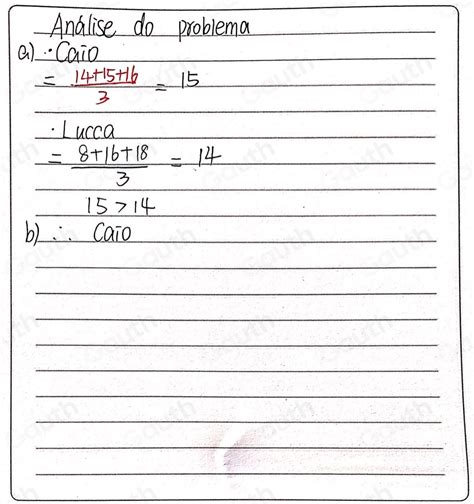 Análise do problema
a) · Caio
= 14+15+16 / 3 = 15
· Lucca
= 8+16+18 / 3 = 14
15 > 14
b) ∴ Caio